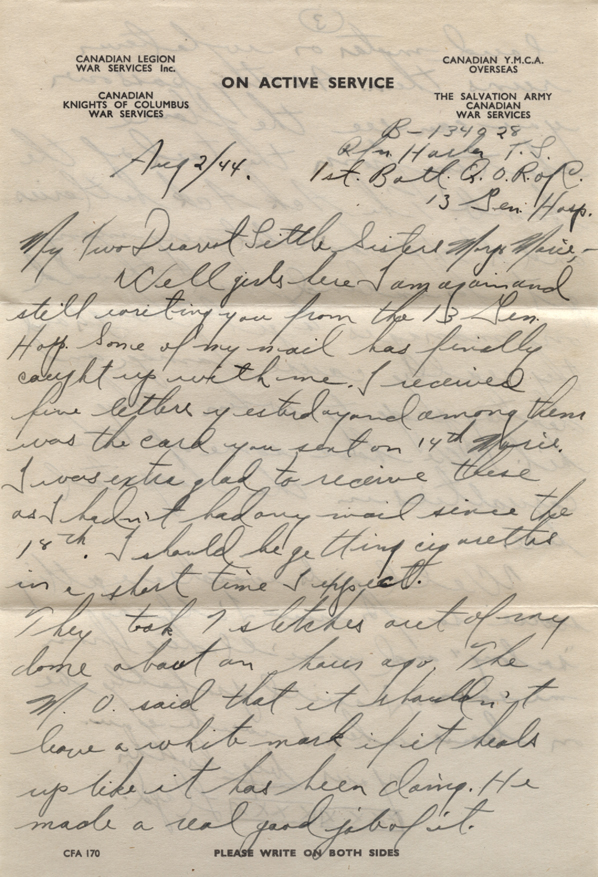 CANADIAN LEGION
WAR SERVICES Inc.
CANADIAN
KNIGHTS OF COLUMBUS
WAR SERVICES
ON ACTIVE SERVICE
CANADIAN Y.M.C.A.
OVERSEAS
THE SALVATION ARMY
CANADIAN
WAR SERVICES
B-134928
Rfn. T. S.
Aug 2/44.
1st. Batl. Q. O. R. of C.
13 Gen. Hosp.
My Two Dearest Little Sisters Marg & Marie,-
Well girls here I am again and
still writing you from the 13 Gen.
Hosp. Some of my mail has finally
caught up with me. I received
five letters yesterday and among them
was the card you sent on 14th Marie.
I was extra glad to receive these
as I hadn't had any mail since the
18th. I should be getting cigarettes
in a short time I expect.
They took 7 stitches out of my
dome about an hour ago. The
M. O. said that it shouldn't
leave a white mark if it heals
up like it has been doing. He
made a real good job of it.
CFA 170
PLEASE WRITE ON BOTH SIDES